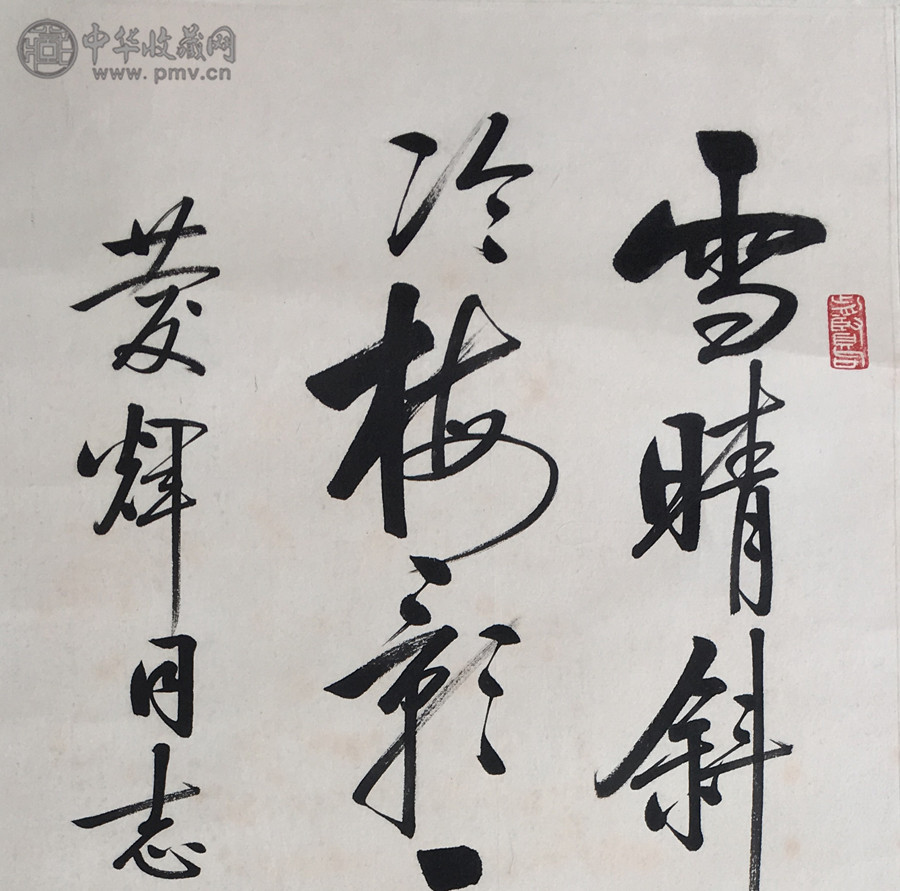 中华收藏网
www.pmv.cn
雪晴斜
冷梅影
煇同志